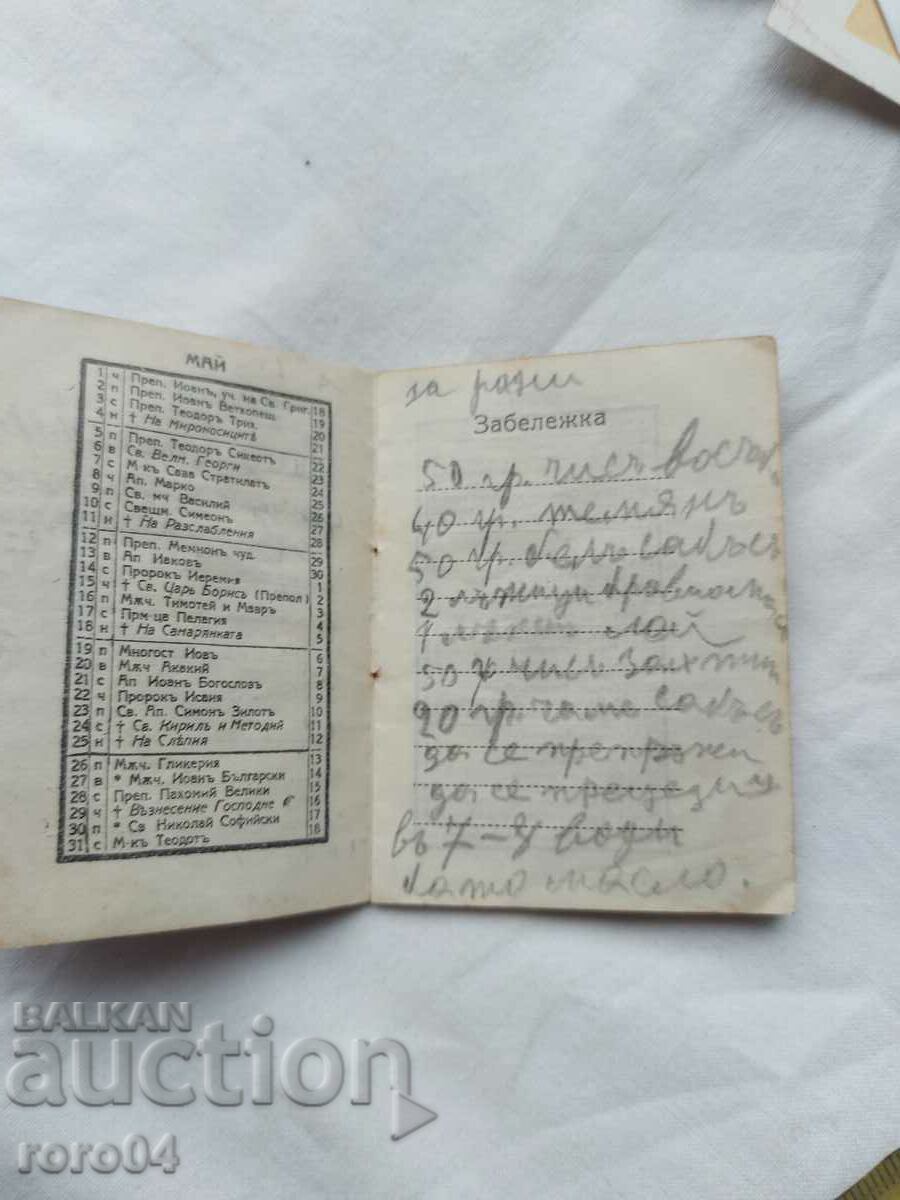 МАЙ
1 ч Преп. Иоанъ, уч. на Св. Григ. 18
2 п Преп. Иоанъ Ветхопещ. 19
3 с Преп. Теодоръ Трих. 20
4 н † На Мироносицитѣ 21
5 п Преп. Теодоръ Сикеотъ 22
6 в Св. Велм. Георги 23
7 с М-къ Сава Стратилатъ 24
8 ч Ап. Марко 25
9 п Св. мч Василий 26
10 с Свешм. Симеонъ 27
11 н † На Разслабления 28
12 п Преп. Мемнонъ чуд. 29
13 в Ап Иаковъ 30
14 с Пророкъ Иеремия 1
15 ч † Св. Царь Борисъ (Препол) 2
16 п Мѫч. Тимотей и Мавръ 3
17 с Прм-це Пелагия 4
18 н † На Самарянката 5
19 п Многост Иовъ 6
20 в Мѫч Акакий 7
21 с Ап Иоанъ Богословъ 8
22 ч Пророкъ Исаия 9
23 п Св. Ап. Симонъ Зилотъ 10
24 с † Св. Кирилъ и Методий 11
25 н † На Слѣпия 12
26 п Мѫч. Гликерия 13
27 в * Мѫч. Иоанъ Български 14
28 с Преп. Пахомий Велики 15
29 ч † Възнесение Господне 16
30 п * Св Николай Софийски 17
31 с М-къ Теодотъ 18
за рани
Забележка
50 гр. чисъ восък
40 гр. темянъ
50 гр. белъ сакъсъ
2 лъжици
1 лой
50 гр чисъ
20 гр. чаме сакъсъ
да се препржи
да се прецеди
въ 7-8 води
като масло.
BALKAN
auction
roro04